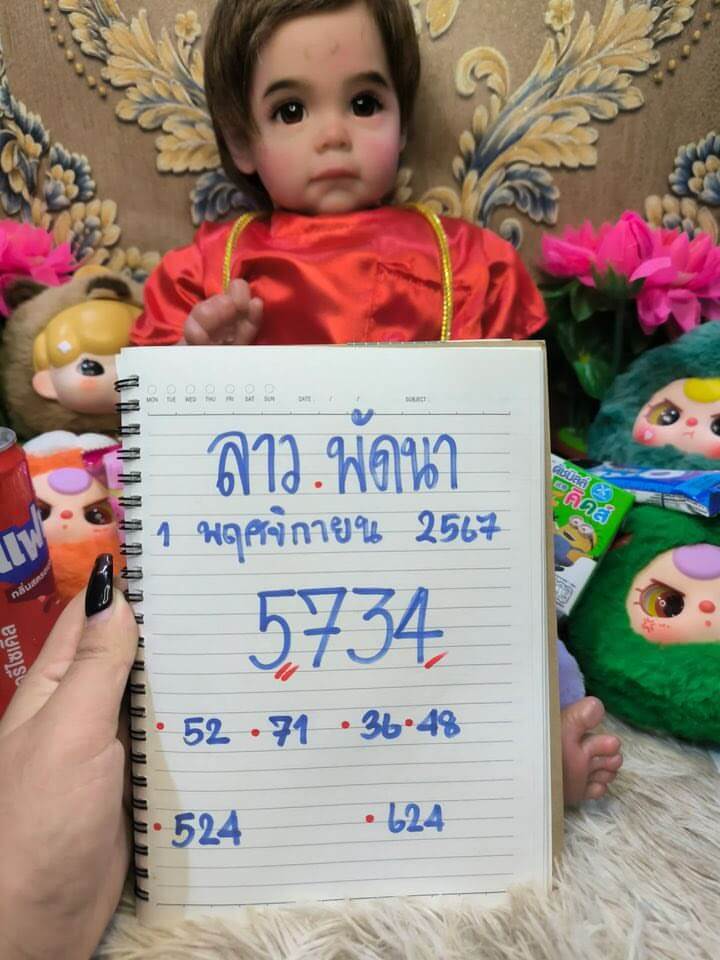 MON TUE WED THU FRI SAT SUN DATE : / / SUBJECT :
ลาว . พัดนา
1 พฤศจิกายน 2567
5734
• 52 • 71 • 36 • 48
• 524 • 624
แฟ
คิดส์